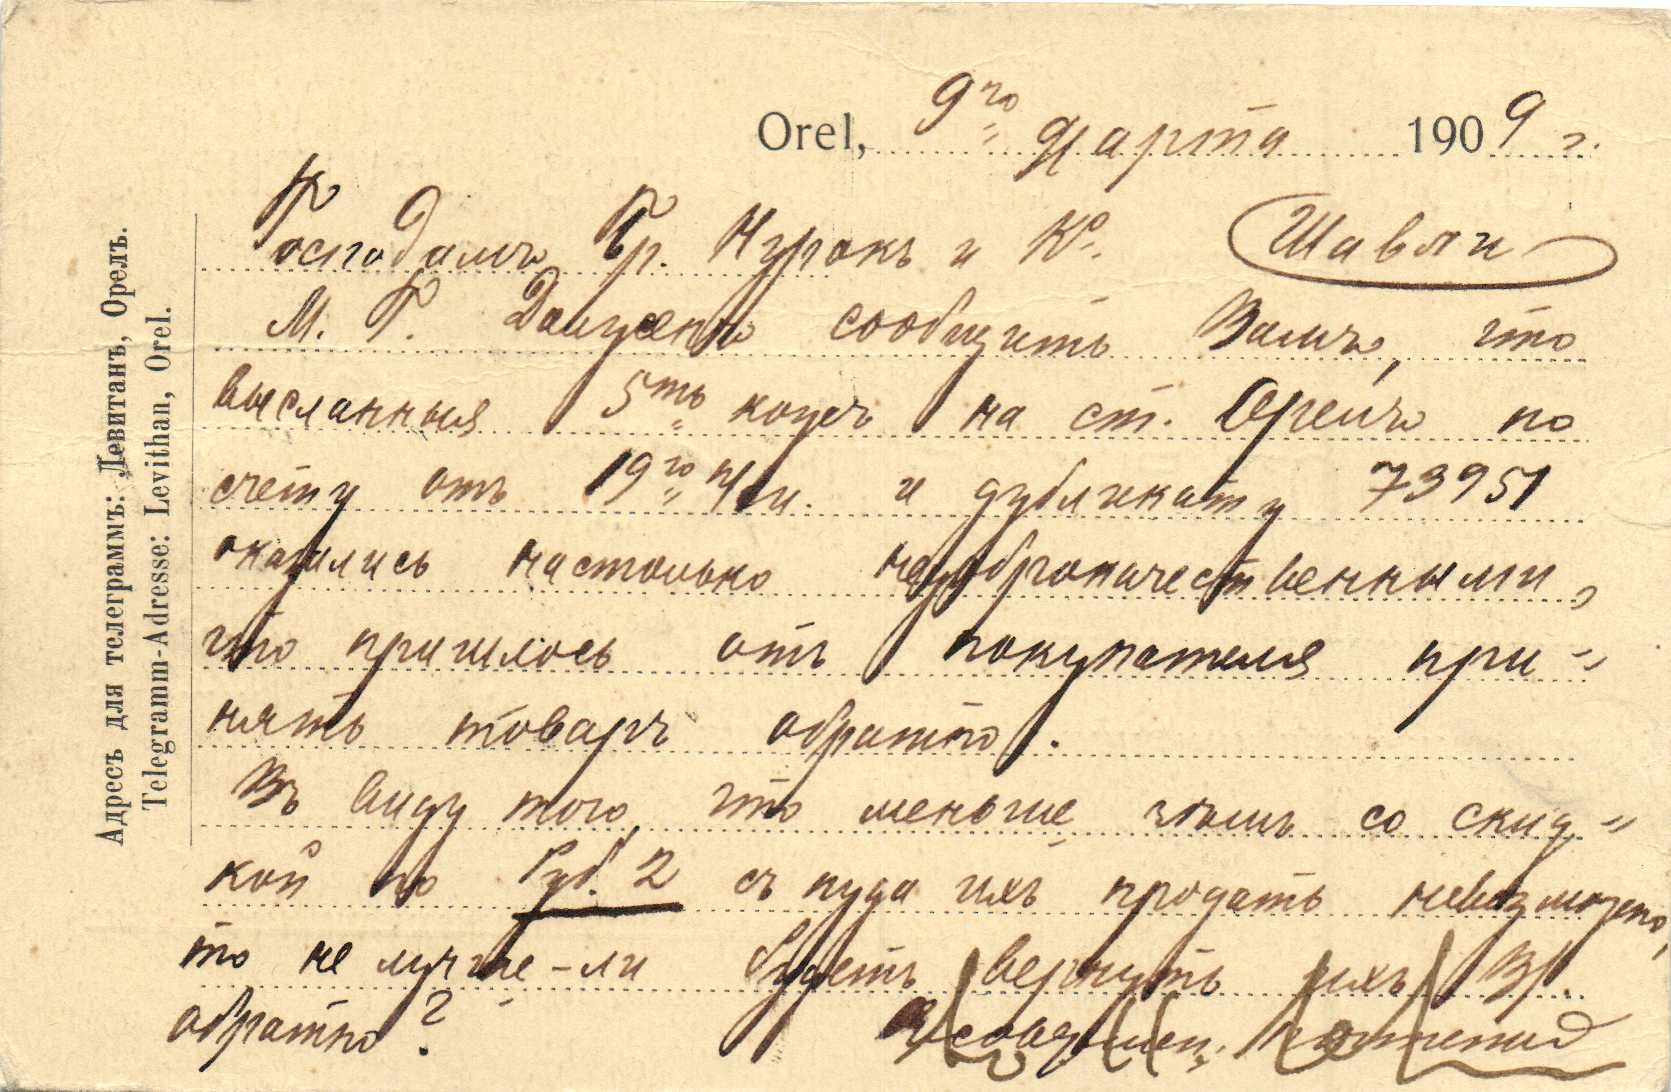 Orel, 9го Марта 1909 г.
Господамъ Бр. Нурокъ и Ко. Шавли
М. Г. Долженъ сообщить Вамъ, что
высланныя 5ть кожъ на ст. Орелъ по
счету отъ 19го и дубликату 73951
оказались настолько недоброкачественными,
что пришлось отъ покупателя при-
нять товаръ обратно.
Въ виду того, что меньше чѣмъ со скид-
кой по Руб. 2 съ пуда ихъ продать невозможно,
то не лучше-ли будетъ вернуть ихъ В/
обратно?
Адресъ для телеграммъ: Левитанъ, Орелъ.
Telegramm-Adresse: Levithan, Orel.